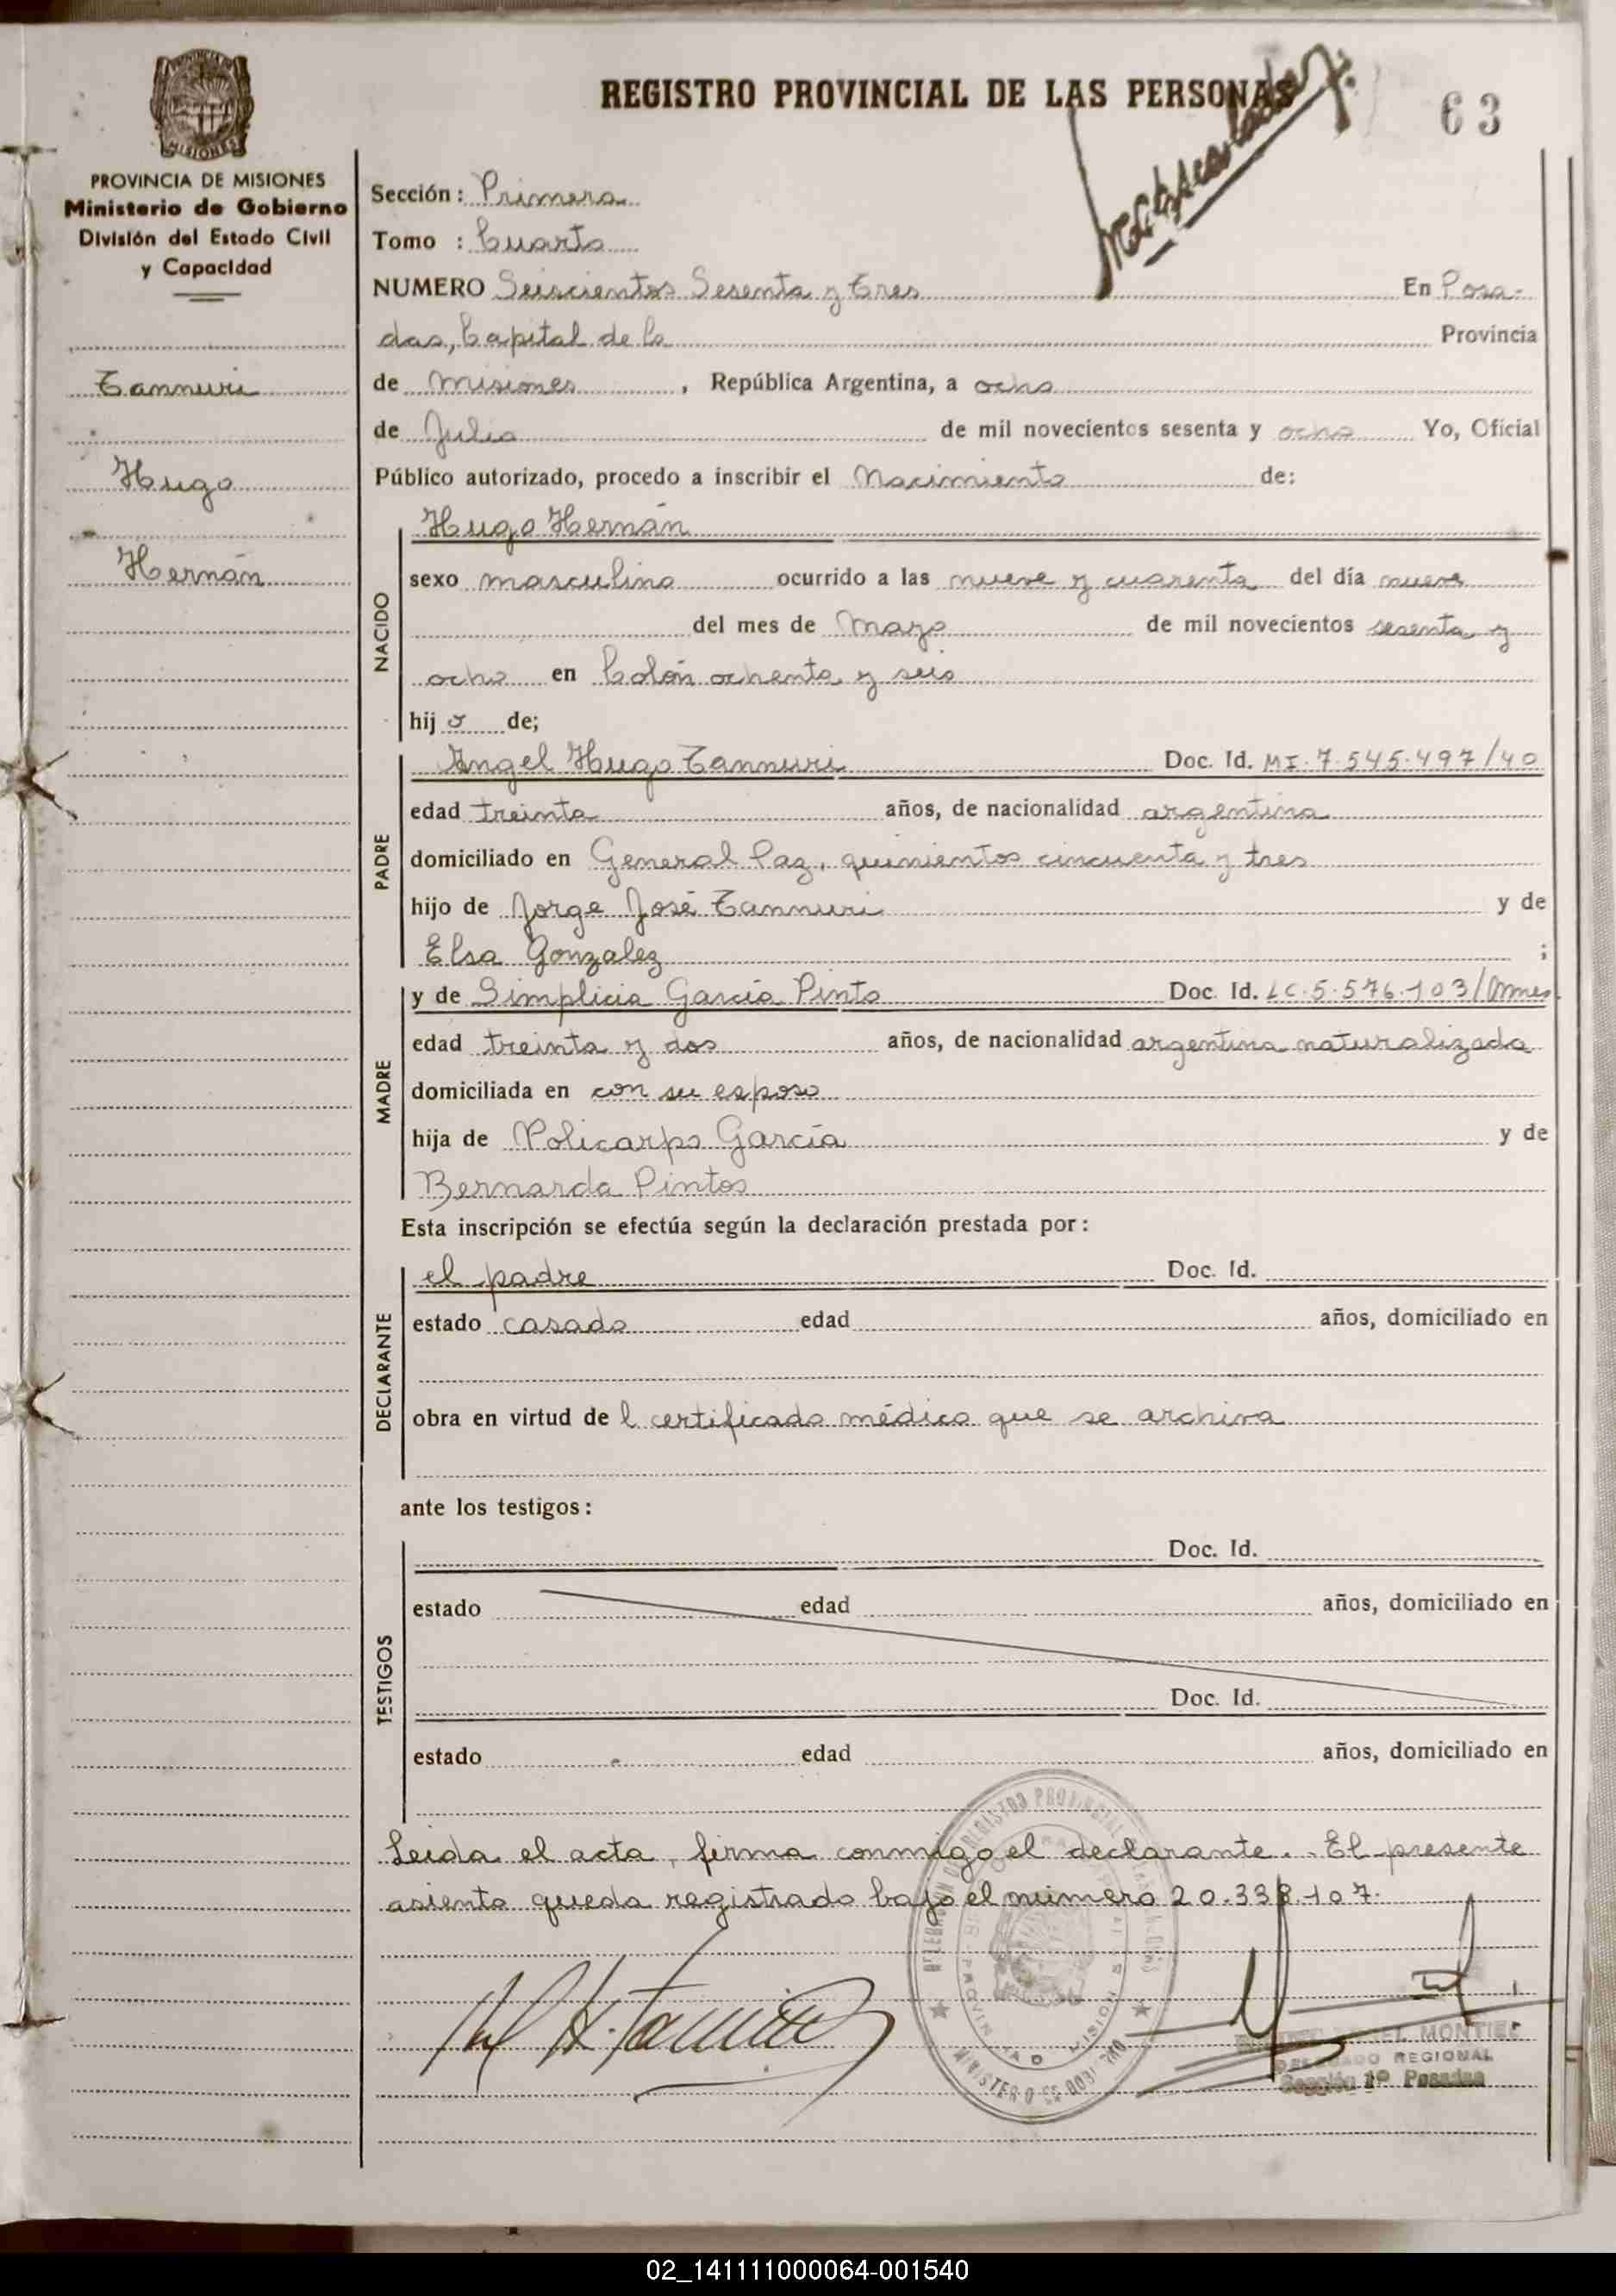 REGISTRO PROVINCIAL DE LAS PERSONAS
63
MISIONES
PROVINCIA DE MISIONES
Ministerio de Gobierno
División del Estado Civil
y Capacidad
Tannuri
Hugo
Hernán
Sección: Primera
Tomo : Cuarto
NUMERO Seiscientos Sesenta y Tres En Posa-
das, Capital de la Provincia
de Misiones, República Argentina, a ocho
de Julio de mil novecientos sesenta y ocho Yo, Oficial
Público autorizado, procedo a inscribir el Nacimiento de:
NACIDO
Hugo Hernán
sexo masculino ocurrido a las nueve y cuarenta del día nueve
del mes de Mayo de mil novecientos sesenta y
ocho en Colón ochenta y seis
hijo de;
PADRE
Angel Hugo Tannuri Doc. Id. MI. 7.545.497/40
edad treinta años, de nacionalidad argentina
domiciliado en General Paz, quinientos cincuenta y tres
hijo de Jorge José Tannuri y de
Elsa Gonzalez ;
MADRE
y de Simplicia García Pinto Doc. Id. LC.5.576.103/
edad treinta y dos años, de nacionalidad argentina naturalizada
domiciliada en con su esposo
hija de Policarpo García y de
Bernarda Pintos
Esta inscripción se efectúa según la declaración prestada por:
DECLARANTE
el padre Doc. Id.
estado casado edad años, domiciliado en
obra en virtud de l certificado médico que se archiva
ante los testigos:
TESTIGOS
Doc. Id.
estado edad años, domiciliado en
Doc. Id.
estado edad años, domiciliado en
Leida el acta, firma conmigo el declarante. El presente
asiento queda registrado bajo el número 20.338.107.
H. Tannuri
MONTIEL
DELEGADO REGIONAL
Sección 1º Posadas
02_141111000064-001540